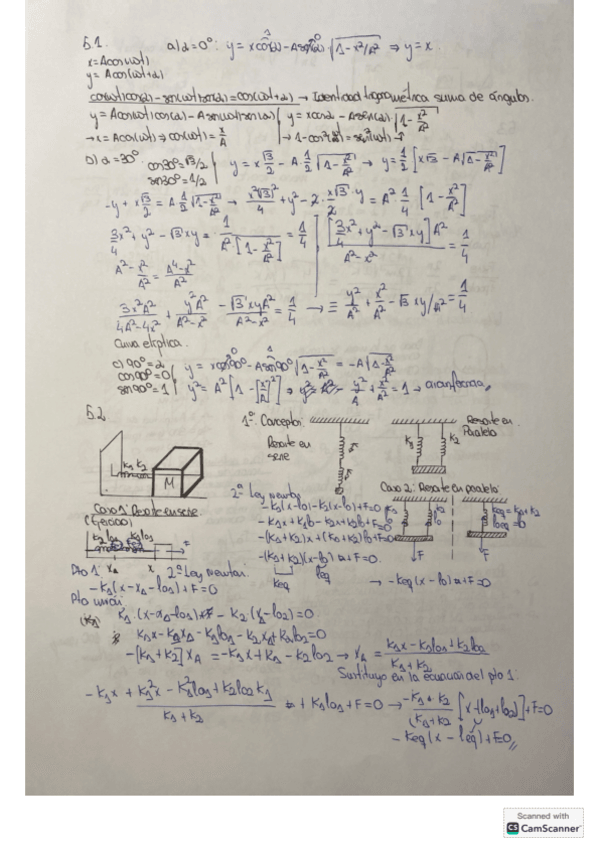 5.1. a) α=0°: y = xcos(α) - Asen(α) √1-x²/A² ⇒ y=x.
x=Acos(ωt)
y=Acos(ωt+α)
cos(ωt)cos(α)-sen(ωt)sen(α)=cos(ωt+α) → Identidad trigonométrica suma de ángulos.
y=Acos(ωt)cos(α)-Asen(ωt)sen(α) | y=xcosα-Asen(α)√1-x²/A²
→x=Acos(ωt)⇒cos(ωt)=x/A → 1-cos²(ωt)=sen²(ωt)
b) α=30° cos30°=√3/2 sen30°=1/2 y=x√3/2 - A·1/2 √1-x²/A² → y=1/2[x√3-A√1-x²/A²]
-y+x√3/2 = A·1/2 √1-x²/A² → x²(√3)²/4 + y² - 2·x√3/2·y = A²·1/4 [1-x²/A²]
3/4x²+y²-√3xy = 1/A²[1-x²/A²] = 1/4 | [3/4x²+y²-√3xy]A²/A²-x² = 1/4
A²-x²/A² = A⁴-x²/A²
3x²A²/4A²-4x² + y²A²/A²-x² - √3xyA²/A²-x² = 1/4 → ≡ y²/A²+x²/A²-√3xy/A²=1/4
Curva elíptica.
c) 90°=α cos90°=0 sen90°=1 y=xcos90°-Asen90°√1-x²/A² = -A√1-x²/A²
y²=A²[1-[x/A]²] → y²/A+x²/A²=1 → circunferencia
5.2 1º Conceptos:
Resorte en serie
Resorte en Paralelo
k1 k2
M
k1 k2
Caso 1: Resorte en serie
(Ejercicio)
2º Ley newton
-k1(x-l0)-k2(x-l0)+F=0
-k1x+k1l0-k2x+k2l0+F=0
-(k1+k2)x+(k1+k2)l0+F=0
-(k1+k2)(x-l0)+F=0.
keq leq
→ -keq(x-l0)+F=0
Caso 2: Resorte en paralelo
keq=k1+k2
F F
xA x F
Pto 1: 2º Ley Newton.
-k1(x-xA-l01)+F=0
Pto unión
k1(x-xA-l01) - k2(xA-l02)=0
k1x-k1xA-k1l01-k2xA+k2l02=0
-[k1+k2]xA=-k1x+k1l01-k2l02 → xA=k1x-k1l01+k2l02/k1+k2
Sustituyo en la ecuación del pto 1:
-k1x + k1²x-k1²l01+k2l02k1/k1+k2 + k1l01+F=0 → -k1·k2/k1+k2 [x-(l01+l02)]+F=0
-keq(x-leq)+F=0
Scanned with
CS CamScanner